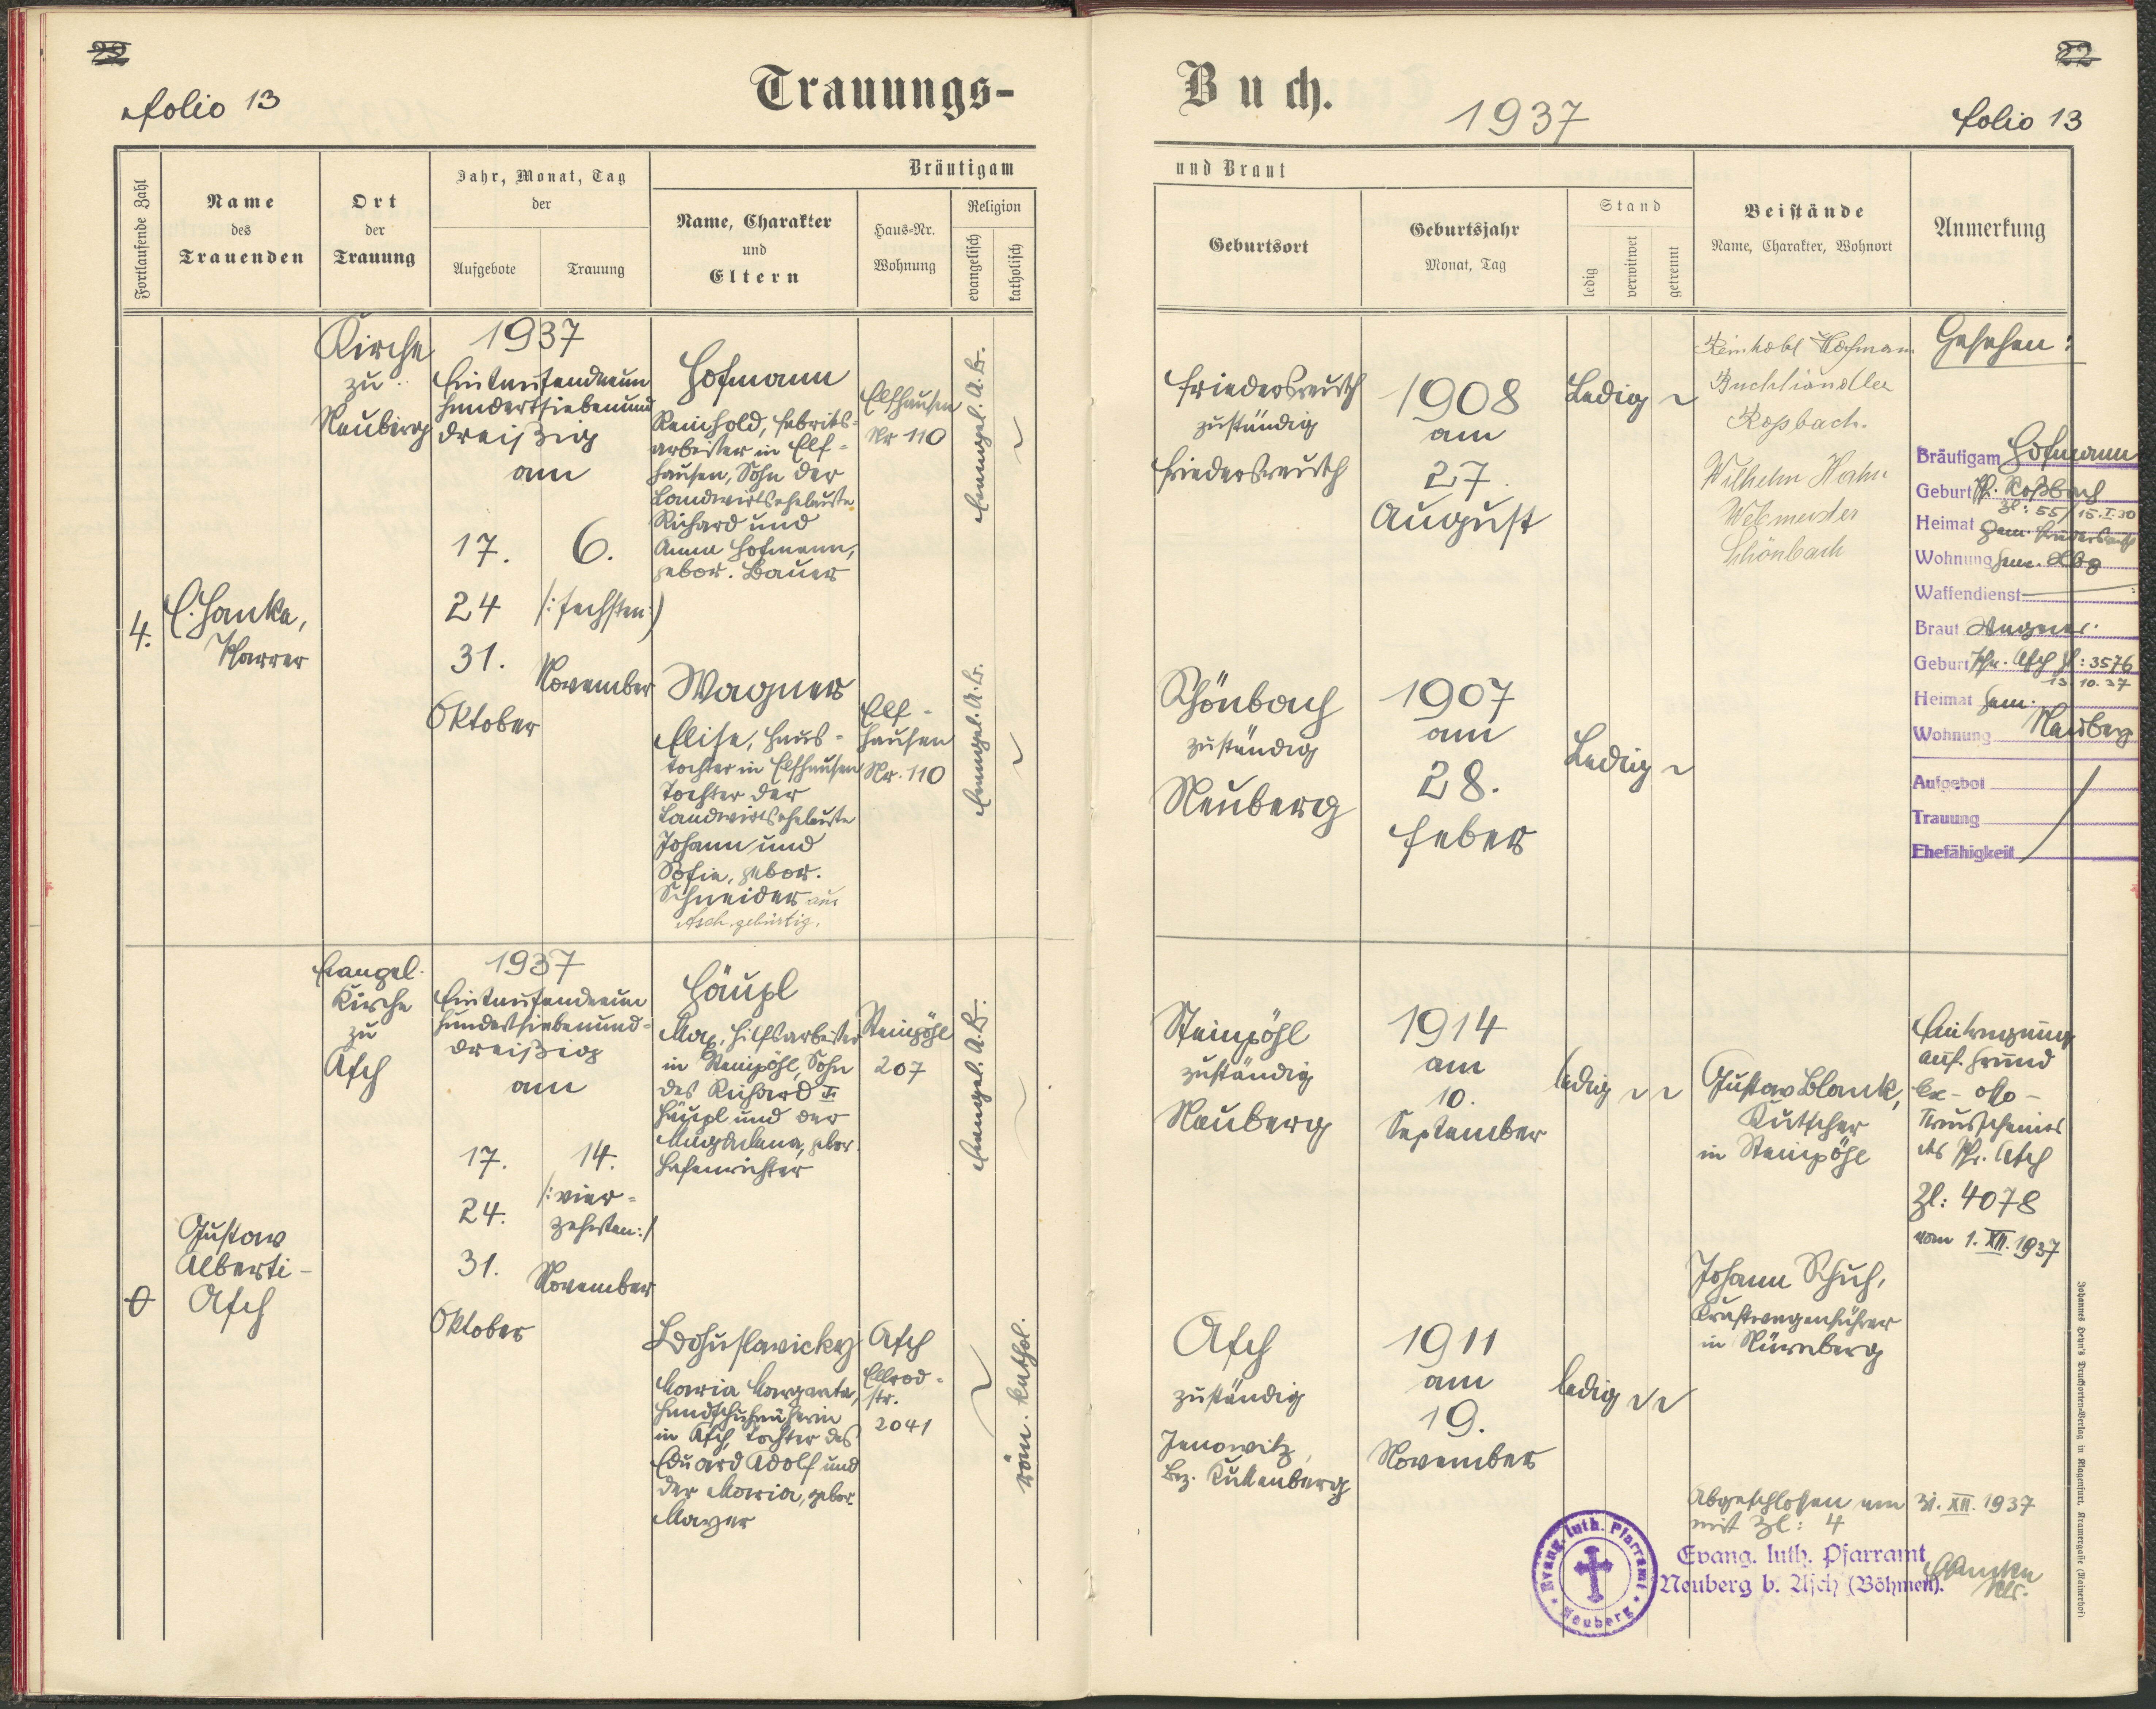 22
folio 13
Trauungs-
Fortlaufende Zahl
Name
des
Trauenden
Ort
der
Trauung
Jahr, Monat, Tag
der
Aufgebote
Trauung
Bräutigam
Name, Charakter
und
Eltern
Haus-Nr.
Wohnung
Religion
evangelisch
katholisch
4.
E. Hanka,
Pfarrer
Kirche
zu
Neuberg
1937
Eintausendneun
hundertsiebenund
dreißig
am
17.
24
31.
Oktober
6.
/:sechsten:/
November
Hofmann
Reinhold, Fabriks-
arbeiter in Elf-
hausen, Sohn der
Landwirtseheleute
Richard und
Anna Hofmann,
gebor. Bauer
Elfhausen
Nr 110
Evangel. A.B.
Wagner
Elise, Haus-
tochter in Elfhausen
Tochter der
Landwirtseheleute
Johann und
Sofie, gebor.
Schneider aus
Asch gebürtig.
Elf-
hausen
Nr. 110
Evangel. A.B.
0
Gustav
Alberti-
Asch
Evangel.
Kirche
zu
Asch
1937
Eintausendneun
hundertsiebenund-
dreißig
am
17.
24.
31.
Oktober
14.
/:vier-
zehnten:/
November
Häupl
Max, Hilfsarbeiter
in Steinpöhl, Sohn
des Richard
Häupl und der
Magdalena, gebor.
Hasenrichter
Steinpöhl
207
Evangel. A.B.
Bohuslavicky
Maria Margareta,
Handschuhnäherin
in Asch, Tochter des
Eduard Adolf und
der Maria, gebor.
Mayer
Asch
Ellrod-
str.
2041
röm. kathol.
22
Buch.
1937
folio 13
und Braut
Geburtsort
Geburtsjahr
Monat, Tag
Stand
ledig
verwitwet
getrennt
Beistände
Name, Charakter, Wohnort
Anmerkung
Friedersreuth
zuständig
Friedersreuth
1908
am
27.
August
Ledig
Reinhold Hofmann
Buchhändler
Roßbach.
Wilhelm Hahn
Webmeister
Schönbach
Gesehen:
Bräutigam Hofmann
Geburt Pf. Roßbach
Zl: 55/15.I.30
Heimat Gem. Friedersreuth
Wohnung Gem.
Waffendienst
Braut Wagner.
Geburt Pfr. Asch Zl: 3576
13.10.37
Heimat Gem.
Wohnung Neuberg
Aufgebot
Trauung
Ehefähigkeit
Schönbach
zuständig
Neuberg
1907
am
28.
Feber
Ledig
Steinpöhl
zuständig
Neuberg
1914
am
10.
September
ledig
Gustav Blank,
Kutscher
in Steinpöhl
Eintragung
auf Grund
ex- offo-
Trauscheines
des Pf. Asch
Zl: 4078
vom 1. XII. 1937
Asch
zuständig
Janowitz,
Bez. Kuttenberg
1911
am
19.
November
ledig
Johann Schuh,
Kraftwagenführer
in Nürnberg
Abgeschlossen am 31. XII. 1937
mit Zl: 4
Evang. luth. Pfarramt
Neuberg b. Asch (Böhmen).
Evang. luth. Pfarramt
Neuberg
Johannes Heyn's Drucksorten-Verlag in Klagenfurt, Kramergasse (Rainerhof)